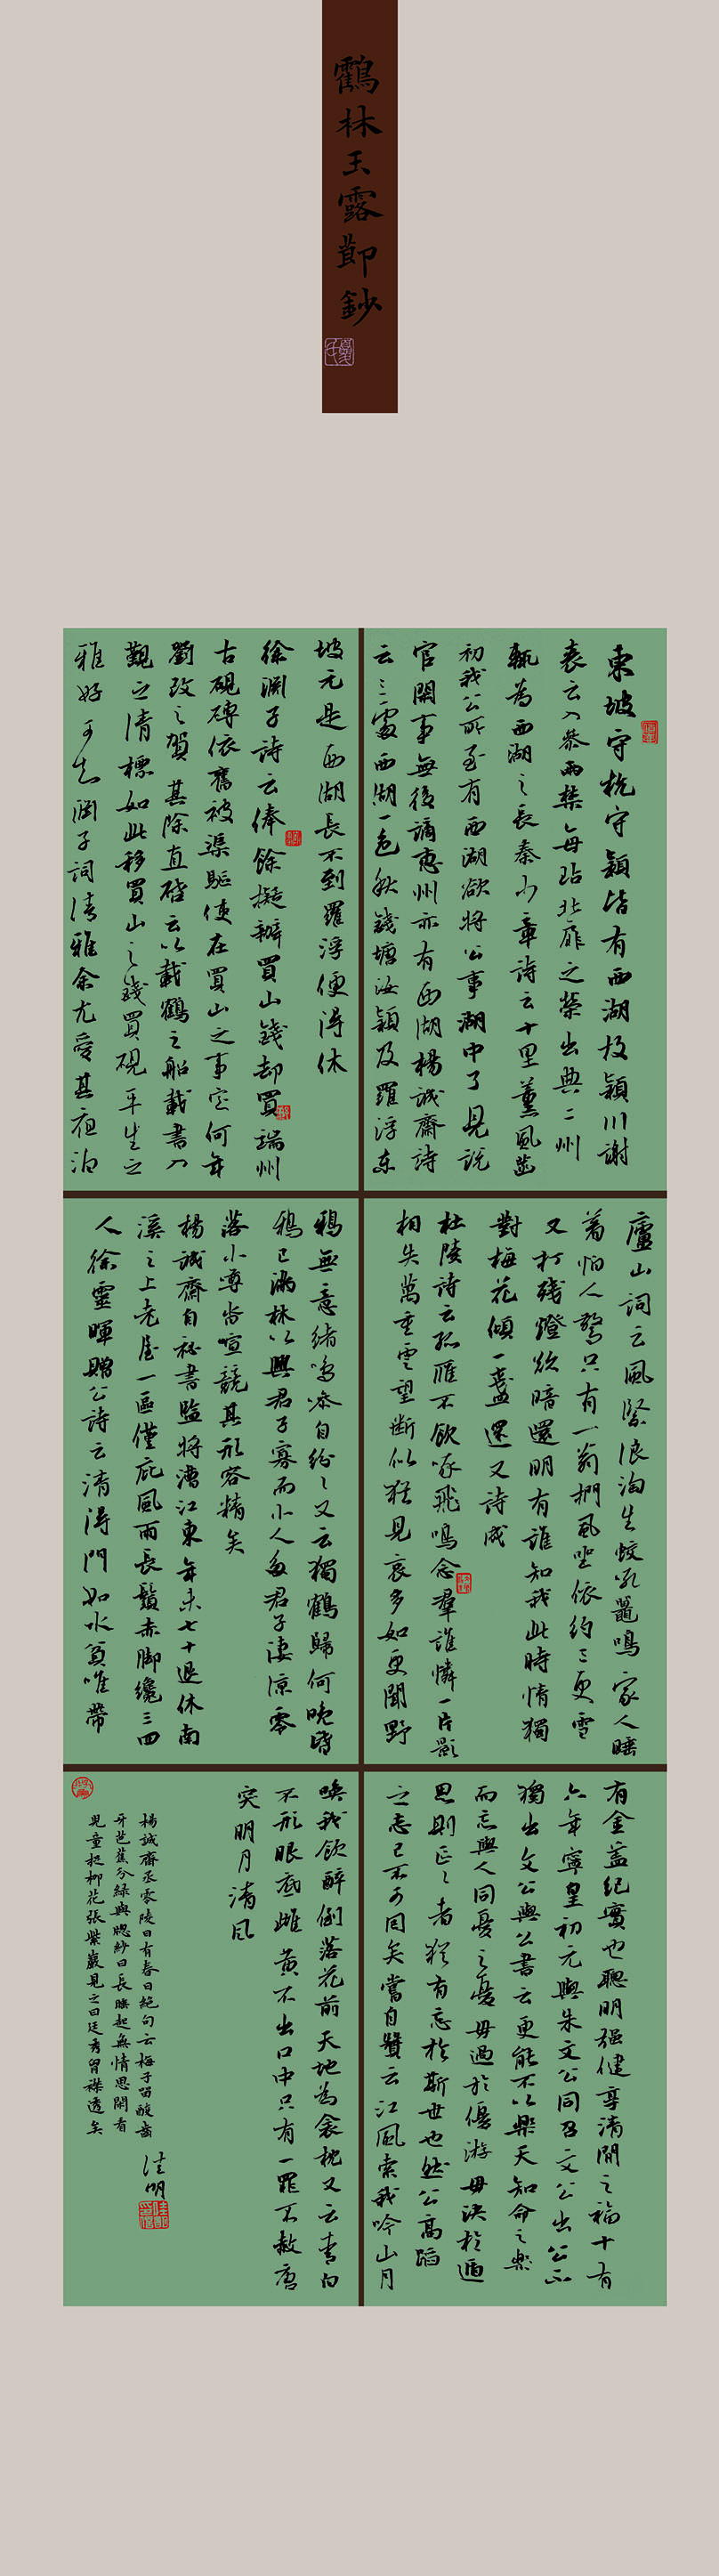 鶴林玉露節鈔
東坡守杭守潁皆有西湖故潁川謝
表云入參兩禁每玷北扉之榮出典二州
輒為西湖之長秦少章詩云十里薰風菡
初我公所至有西湖欲將公事湖中了見說
官閒事每後謫惠州亦有西湖楊誠齋詩
云三處西湖一色秋錢塘汝潁及羅浮東
坡元是西湖長不到羅浮便得休
徐淵子詩云俸餘擬辦買山錢却買端州
古硯磚依舊被渠驅使在買山之事定何年
劉改之賀其除直院啓云以載鶴之船載書入
觀之清標如此移買山之錢買硯平生之
雅好可知淵子詞清雅余尤愛其夜泊
廬山詞云風緊浪淘生蛟吼鼉鳴家人睡
着怕人驚只有一翁捫虱坐依約三更雪
又打殘燈欲暗還明有誰知我此時情獨
對梅花傾一盞還又詩成
杜陵詩云孤雁不飲啄飛鳴念羣誰憐一片影
相失萬重雲望斷似猶見哀多如更聞野
鴉無意緒鳴噪自紛紛又云獨鶴歸何晚昏
鴉已滿林以興君子寡而小人多君子淒涼零
落小噂沓喧競其形容精矣
楊誠齋自秘書監將漕江東年未七十退休南
溪之上老屋一區僅庇風雨長鬚赤脚纔三四
人徐靈暉贈公詩云清得門如水貧唯帶
有金蓋紀實也聰明强健享清閒之福十有
六年寧皇初元與朱文公同召文公出公不
獨出文公與公書云更能不以樂天知命之樂
而忘與人同憂之憂毋過於優游毋決於遁
思則區區者猶有忘於斯世也然公高蹈
之志已不可回矣嘗自贊云江風索我吟山月
喚我飲醉倒落花前天地為衾枕又云青白
不形眼底雌黃不出口中只有一罪不赦唐
突明月清風
楊誠齋丞零陵日有春日絕句云梅子留酸齒
牙芭蕉分綠與牕紗日長睡起無情思閒看
兒童捉柳花張紫巖見之曰廷秀胷襟透矣
佳明